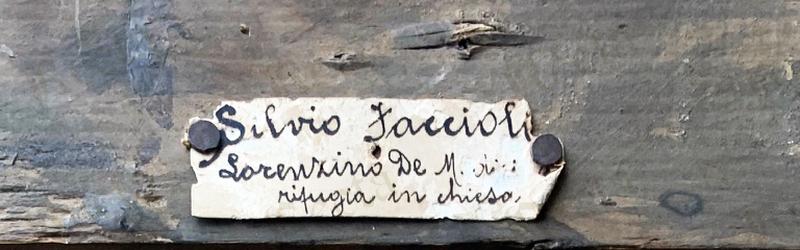 Silvio Faccioli
Lorenzino De M
rifugia in chiesa.